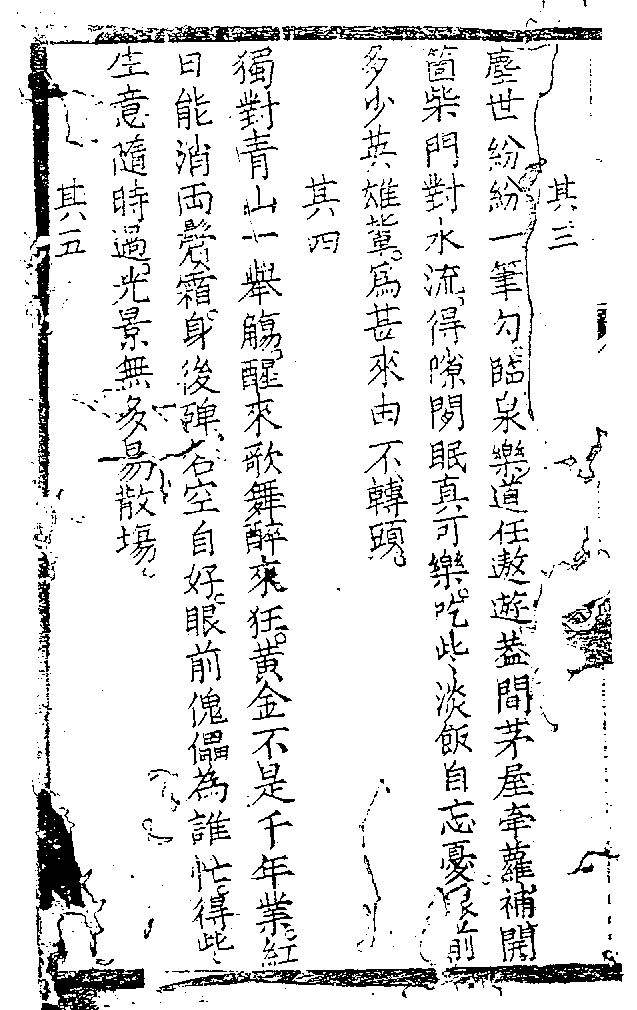 其三
塵世紛紛一筆勾臨泉樂道任遨遊蓋間茅屋牽蘿補開
箇柴門對水流得隙閑眠真可樂吃些淡飯自忘憂眼前
多少英雄輩爲甚来由不轉頭
其四
獨對青山一舉觴醒來歌舞醉來狂黃金不是千年業紅
日能消両鬢霜身後碑石空自好眼前傀儡為誰忙得些
生意隨時過光景無多易散塲
其五